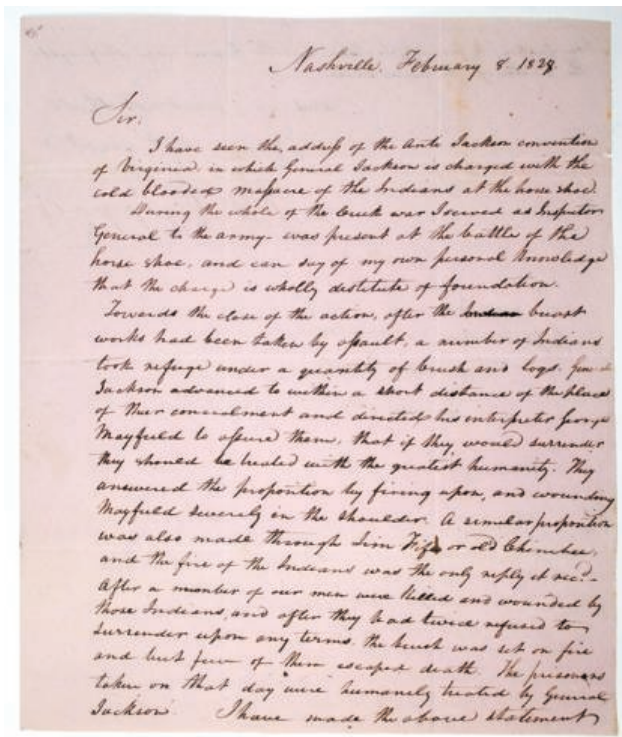 Nashville. February 8. 1828
Sir.
I have seen the address of the Ante Jackson convention
of Virginia, in which General Jackson is charged with the
cold blooded massacre of the Indians at the horse shoe.
During the whole of the Creek war I served as Inspector
General to the army- was present at the battle of the
horse shoe, and can say of my own personal knowledge
that the charge is wholly destitute of foundation.
Towards the close of the action, after the Indian breast
works had been taken by assault, a number of Indians
took refuge under a quantity of brush and logs. Genl
Jackson advanced to within a short distance of the place
of their concealment and directed his interpreter George
Mayfield to assure them, that if they would surrender
they should be treated with the greatest humanity. They
answered the proposition by firing upon, and wounding
Mayfield severely in the shoulder. A similar proposition
was also made through Jim Fife or old Chinibee,
and the fire of the Indians was the only reply it recd.-
After a number of our men were killed and wounded by
those Indians, and after they had twice refused to
surrender upon any terms, the brush was set on fire
and but few of them escaped death. The prisoners
taken on that day were humanely treated by General
Jackson. I have made the above statement